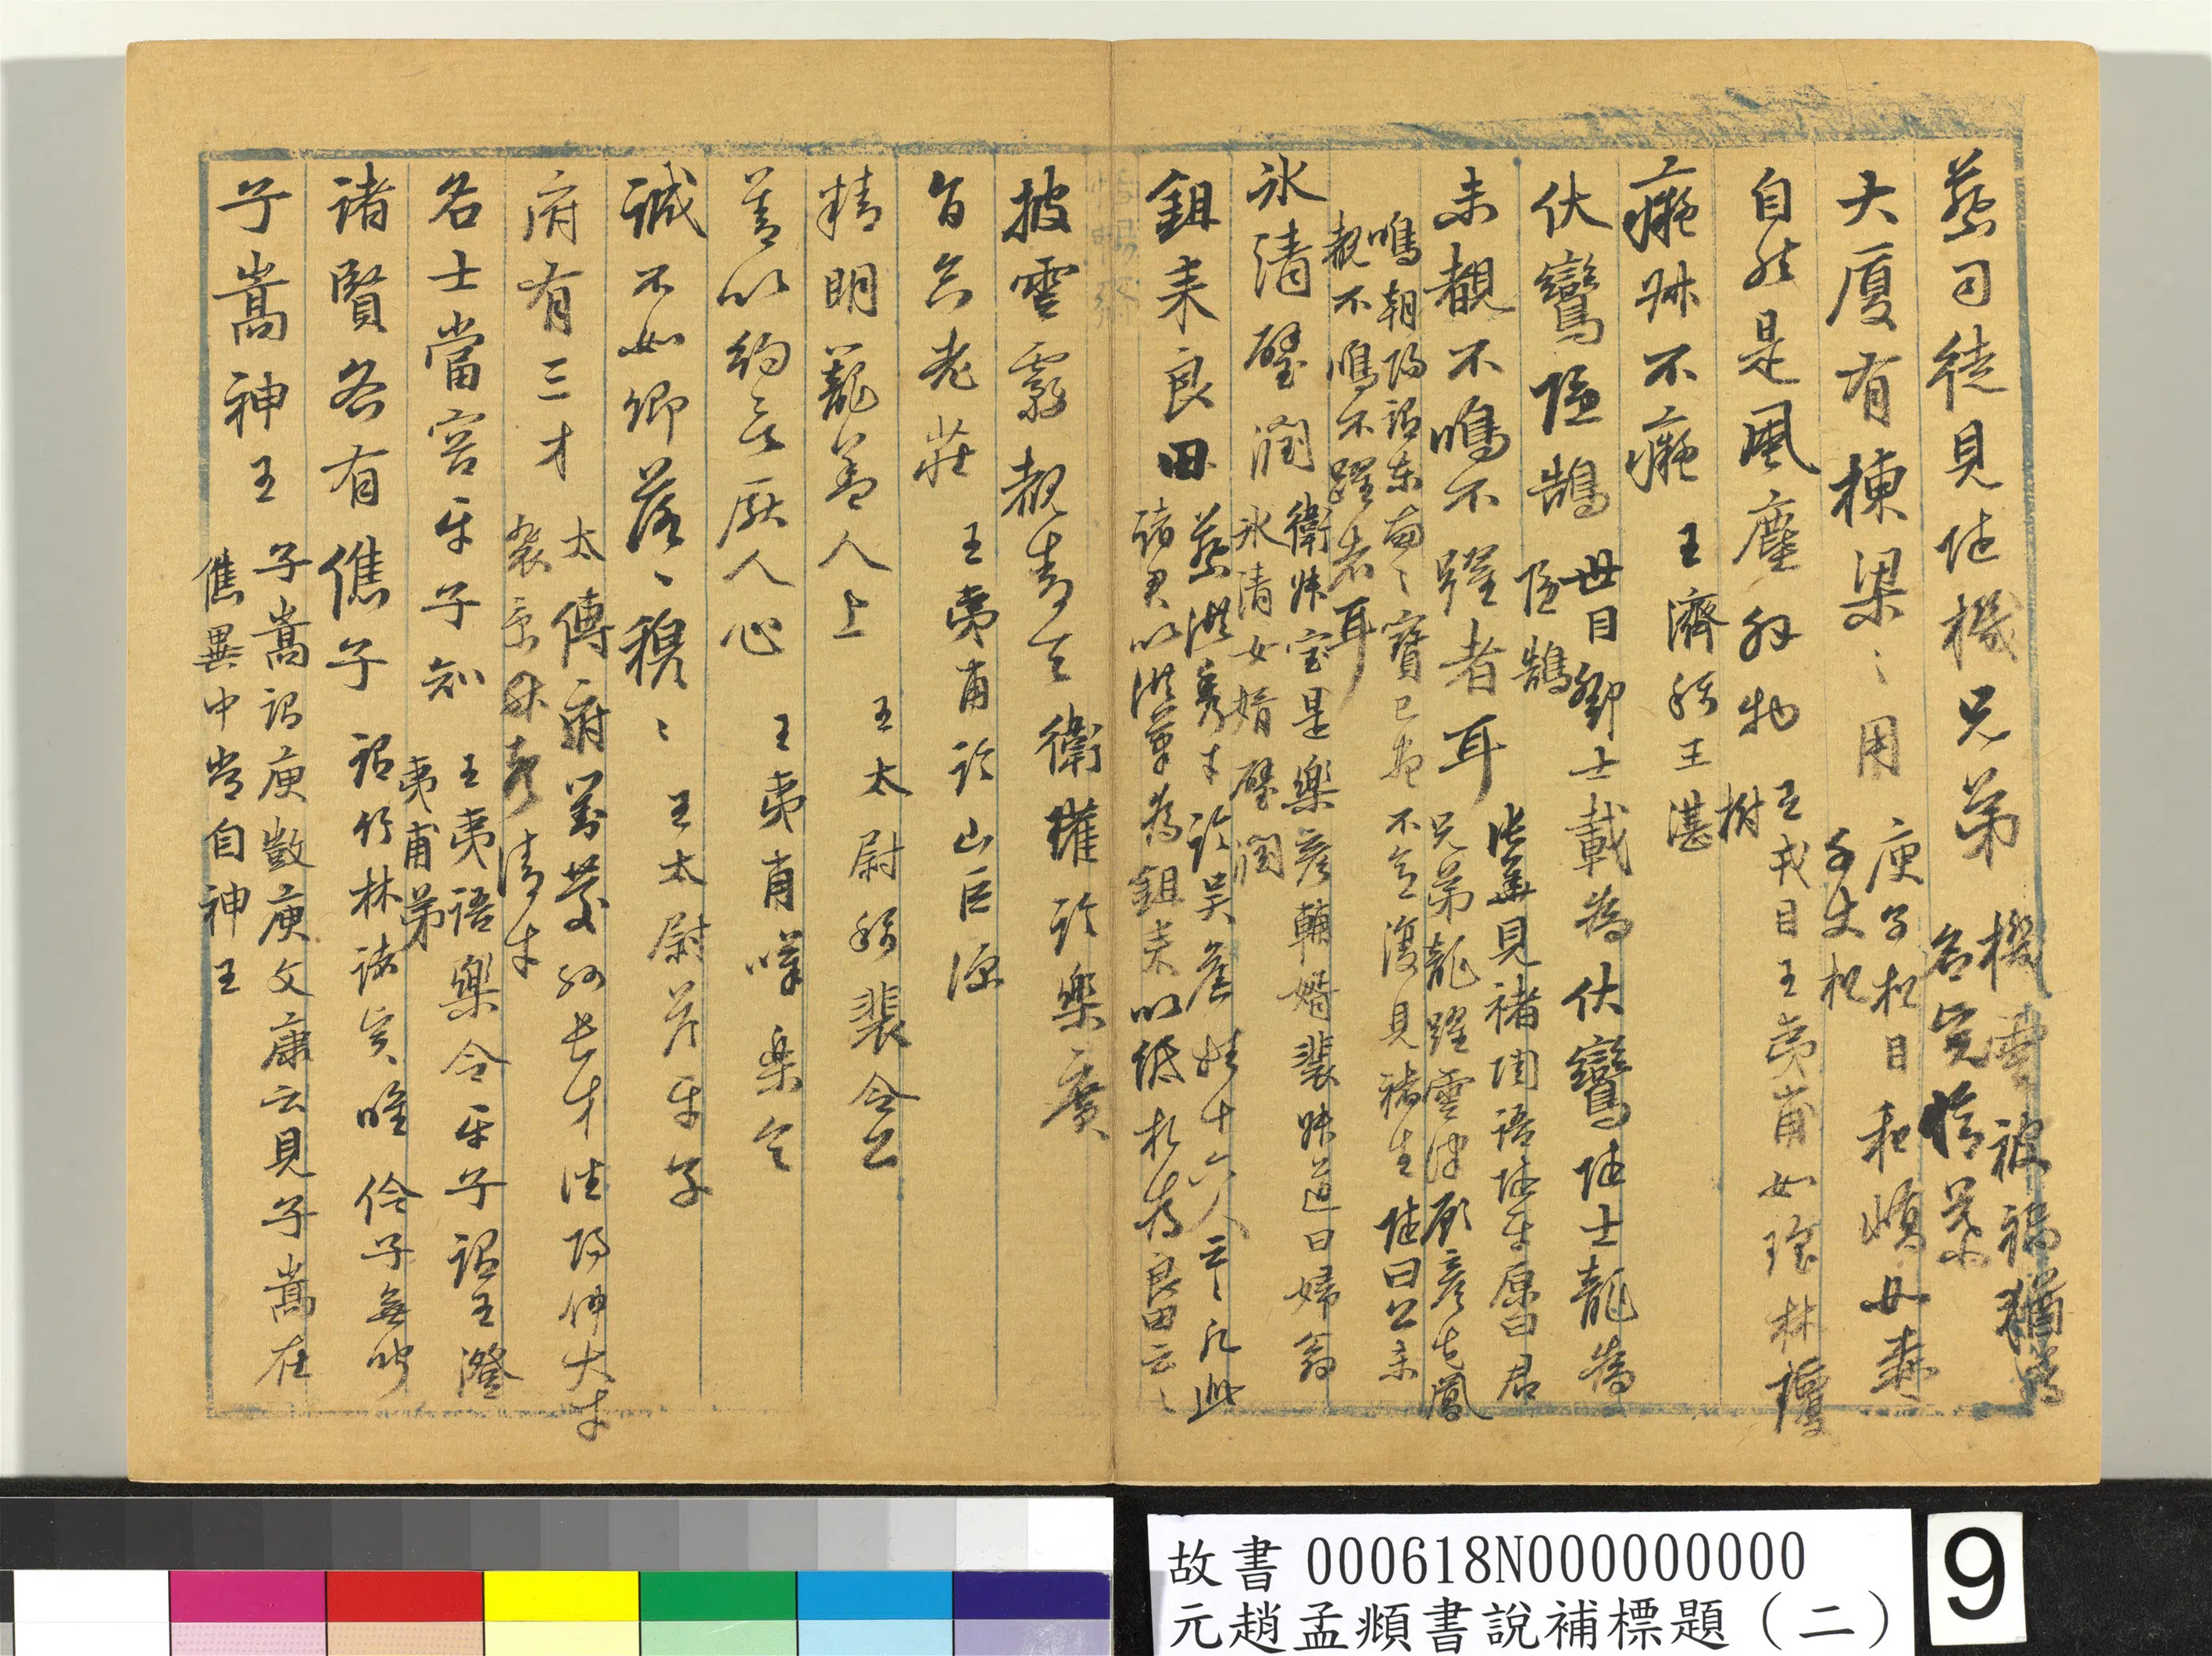 蔡司徒見陸機兄弟
機雲被禍猶為
名完惜哉
大廈有棟梁之用
庾子松目和嶠世業
千丈松
自然是風塵外物
王戎目王夷甫如瑤林瓊
樹
癡叔不癡
王濟稱王湛
伏鸞隱鵠
世目鄒士載為伏鸞陸士龍為
隱鵠
未覩不鳴不躍者耳
張華見褚陶語陸平原曰君
兄弟龍躍雲津顧彥先鳳
鳴朝陽謂東南之寶已盡不意復見褚生陸曰公未
覩不鳴不躍者耳
氷清璧潤
衛妹宣是樂彥輔婿裴妹道曰婦翁
氷清女婿璧潤
鉏耒良田
蔡洪秀才論吳舊姓十六人云云凡此
諸君以洪筆為鉏耒以紙札為良田云云
披雲霧覩青天
衛瓘論樂廣
旨合老莊
王夷甫論山巨源
精明籠蓋人上
王太尉稱裴令公
善以約言厭人心
王夷甫嘆樂令
誠不如卿落落穆穆
王太尉答平子
府有三才
太傅府劉慶孫長才潘陽仲大才
裴景聲清才
名士當容平子知
王夷甫語樂令平子謂王澄
夷甫弟
諸賢各有儁子
謂竹林諸賢唯伶子無聞
子嵩神王
子嵩謂庾敳庾文康云見子嵩在
儁異中常自神王
故書000618N000000000
元趙孟頫書說補標題（二）
9